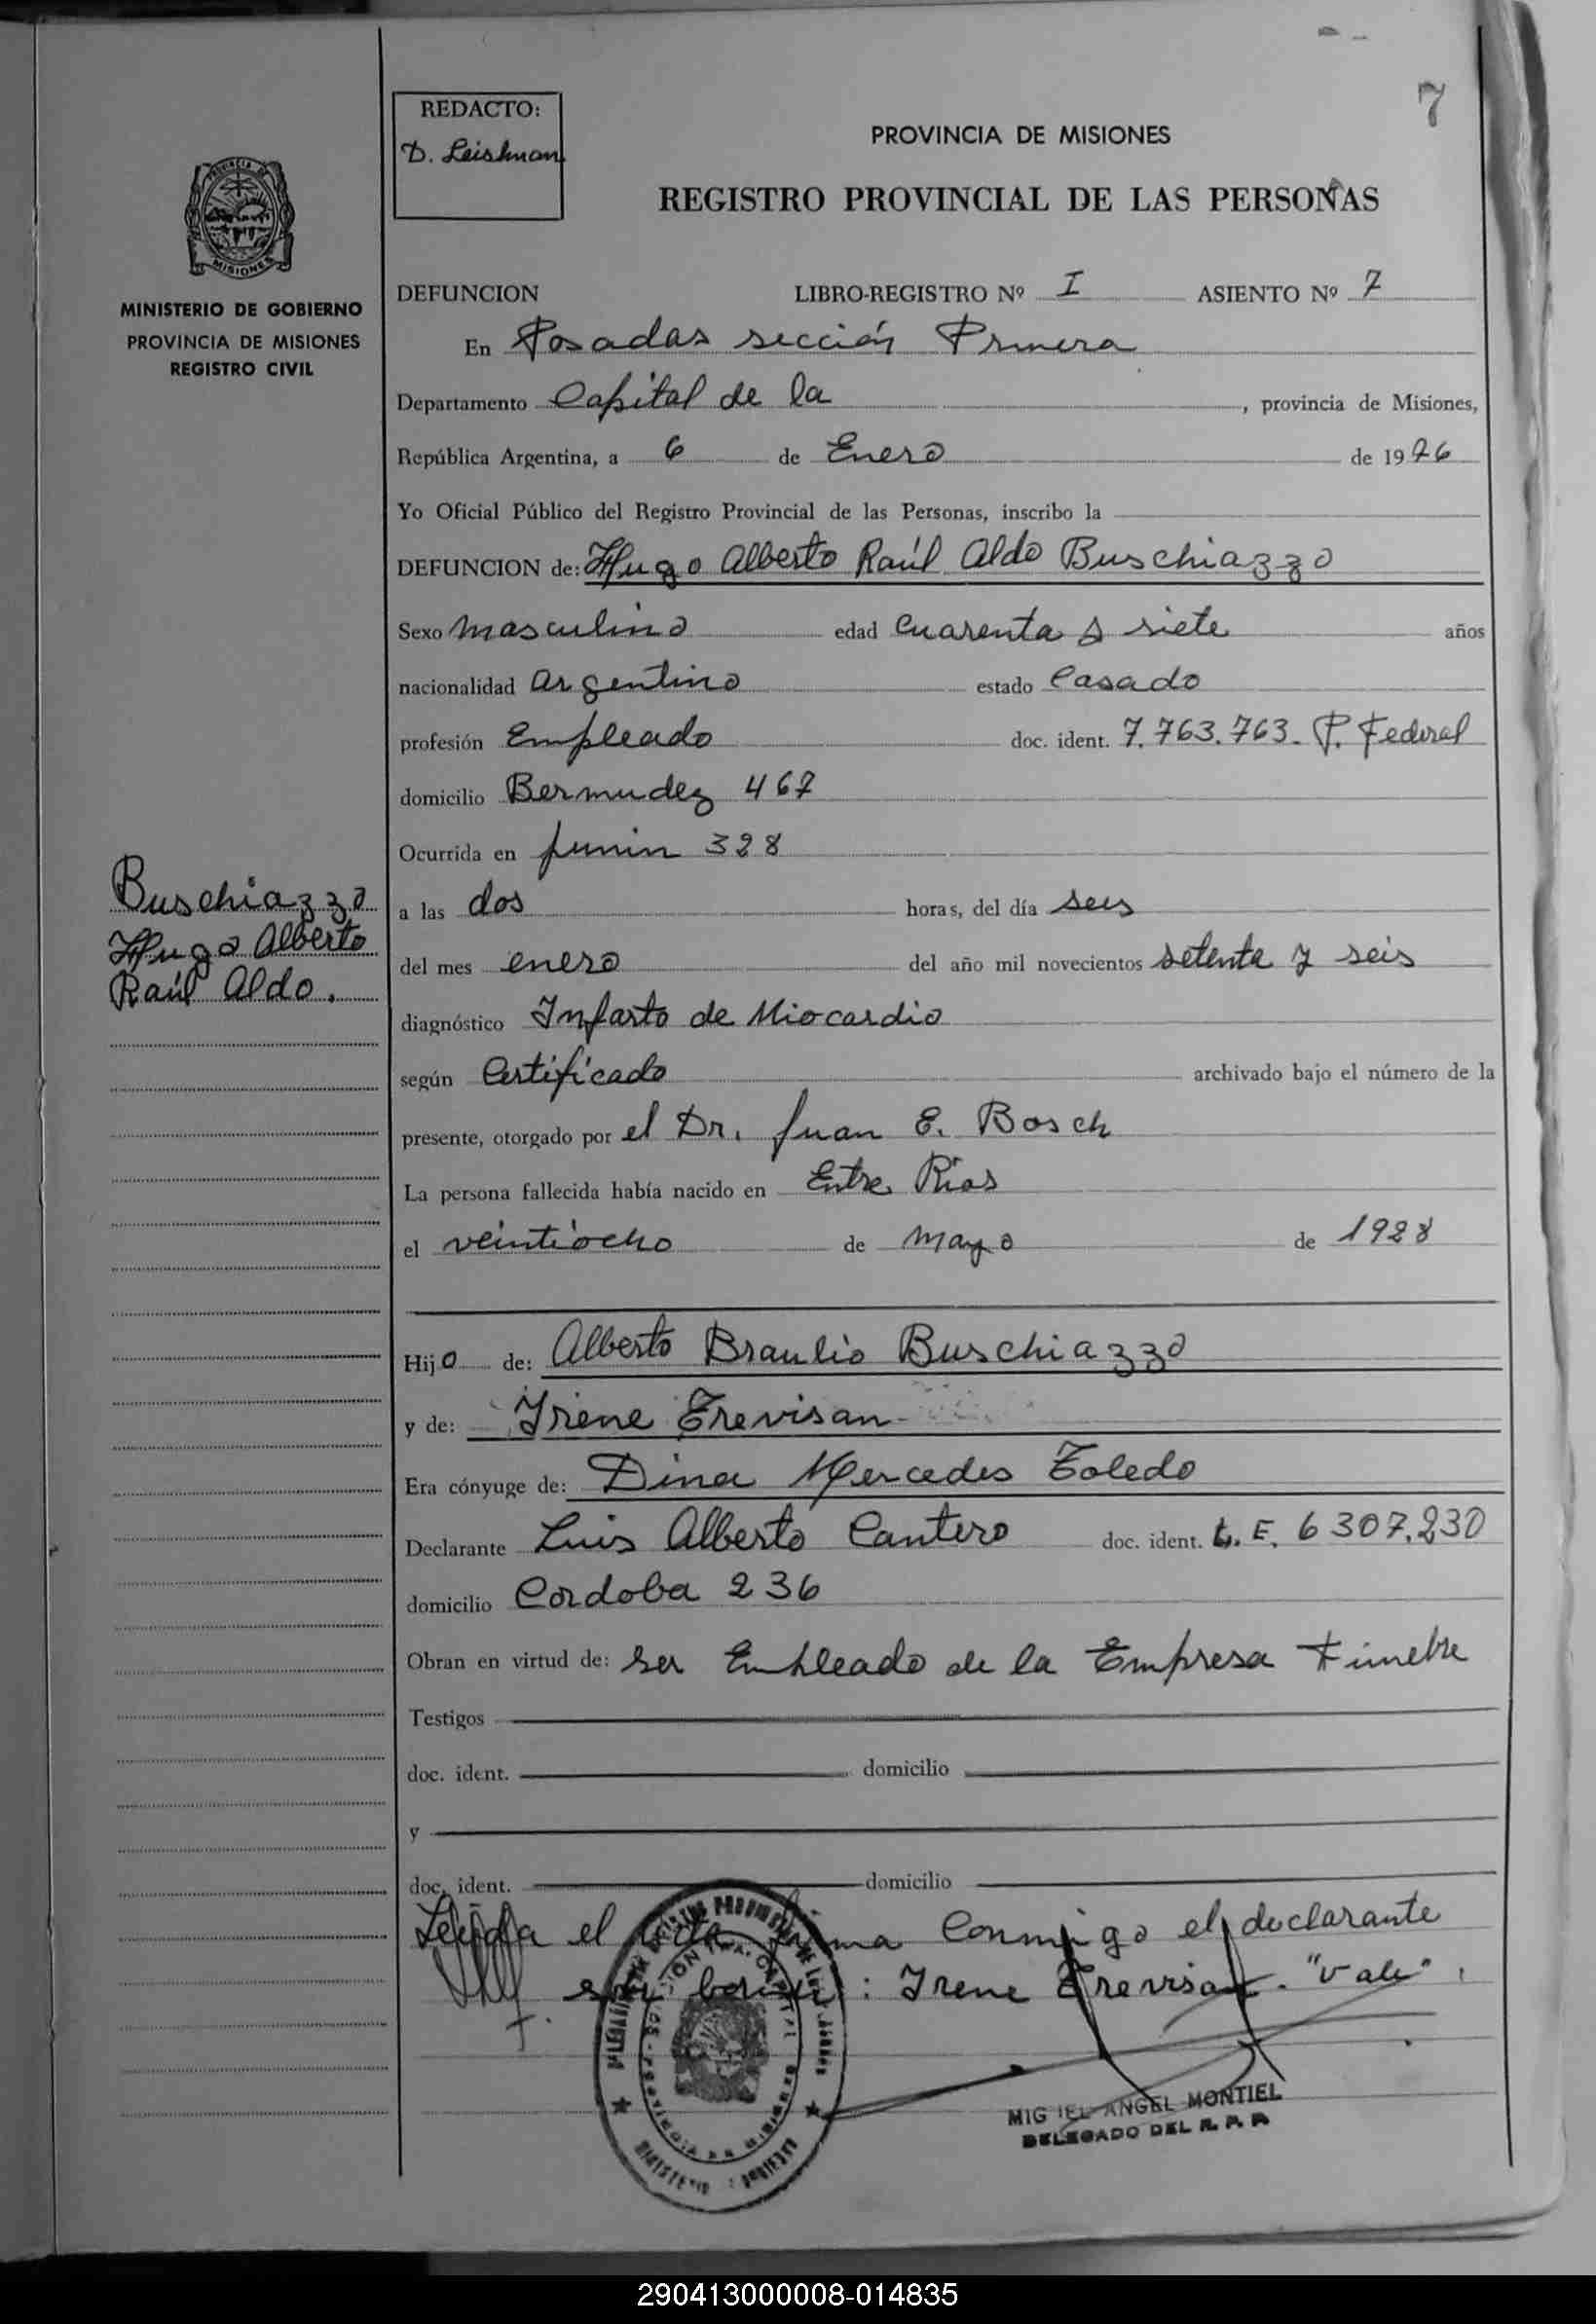 7
REDACTO:
D. Leishman
PROVINCIA DE MISIONES
REGISTRO PROVINCIAL DE LAS PERSONAS
MISIONES
MINISTERIO DE GOBIERNO
PROVINCIA DE MISIONES
REGISTRO CIVIL
DEFUNCION LIBRO-REGISTRO Nº I ASIENTO Nº 7
En Posadas sección Primera
Departamento Capital de la , provincia de Misiones,
República Argentina, a 6 de Enero de 1976
Yo Oficial Público del Registro Provincial de las Personas, inscribo la
DEFUNCION de: Hugo Alberto Raúl Aldo Buschiazzo
Sexo masculino edad cuarenta y siete años
nacionalidad argentino estado Casado
profesión Empleado doc. ident. 7.763.763. P. Federal
domicilio Bermudez 467
Ocurrida en Junin 328
Buschiazzo
Hugo Alberto
Raúl Aldo.
a las dos horas, del día seis
del mes enero del año mil novecientos setenta y seis
diagnóstico Infarto de Miocardio
según Certificado archivado bajo el número de la
presente, otorgado por el Dr. Juan E. Bosch
La persona fallecida había nacido en Entre Rios
el veintiocho de mayo de 1928
Hijo de: Alberto Braulio Buschiazzo
y de: Irene Trevisan
Era cónyuge de: Dina Mercedes Toledo
Declarante Luis Alberto Cantero doc. ident. L. E. 6307.230
domicilio Cordoba 236
Obran en virtud de: ser Empleado de la Empresa Fúnebre
Testigos
doc. ident. domicilio
y
doc. ident. domicilio
Leída el acta firma conmigo el declarante
: Irene Trevisan. "Vale".
MIGUEL ANGEL MONTIEL
DELEGADO DEL R. P. P.
290413000008-014835